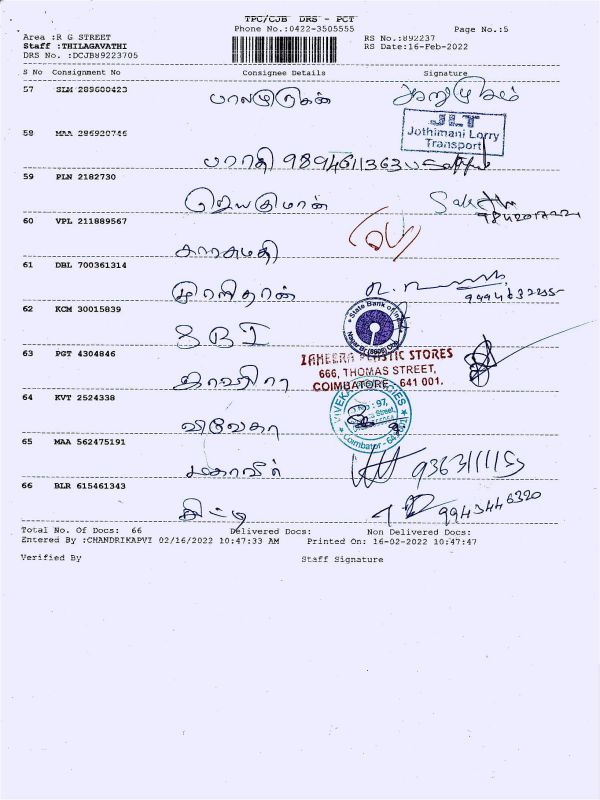 TPC/CJB DRS - PCT
Phone No.:0422-3505555 Page No.:5
Area :R G STREET RS No.:892237
Staff :THILAGAVATHI RS Date:16-Feb-2022
DRS No. :DCJB89223705
S No Consignment No Consignee Details Signature
57 SLM 289600423 பாலமுருகன் ஆறுமுகம்
JLT
Jothimani Lorry
Transport
58 MAA 286920746 பாரதி 9894611363
59 PLN 2182730 ஜெயகுமான்
60 VPL 211889567
61 DBL 700361314 முரளிதரன்
62 KCM 30015839 SBI
State Bank of India
63 PGT 4304846
ZAHEERA PLASTIC STORES
666, THOMAS STREET,
COIMBATORE - 641 001.
64 KVT 2524338 விவேகா
VIVEKA AGENCIES
Coimbatore - 641 001
65 MAA 562475191 மகாவீர்
66 BLR 615461343 9943446320
Total No. Of Docs: 66 Delivered Docs: Non Delivered Docs:
Entered By :CHANDRIKAPVI 02/16/2022 10:47:33 AM Printed On: 16-02-2022 10:47:47
Verified By Staff Signature